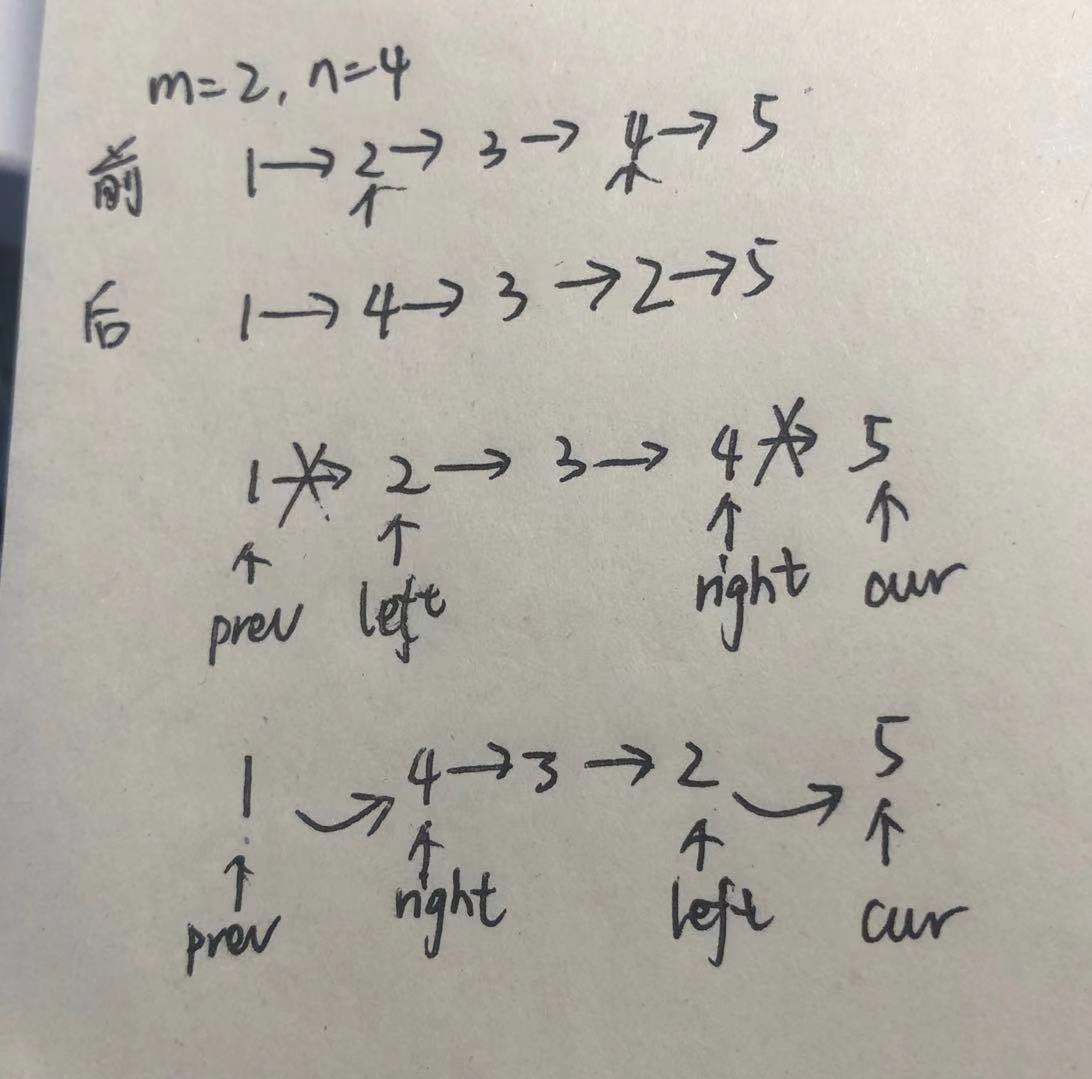 m=2, n=4
前 1→2→3→4→5
↑ ↑
后 1→4→3→2→5
1→2→3→4→5
↑ ↑ ↑ ↑
prev left right cur
1→4→3→2→5
↑ ↑ ↑ ↑
prev right left cur